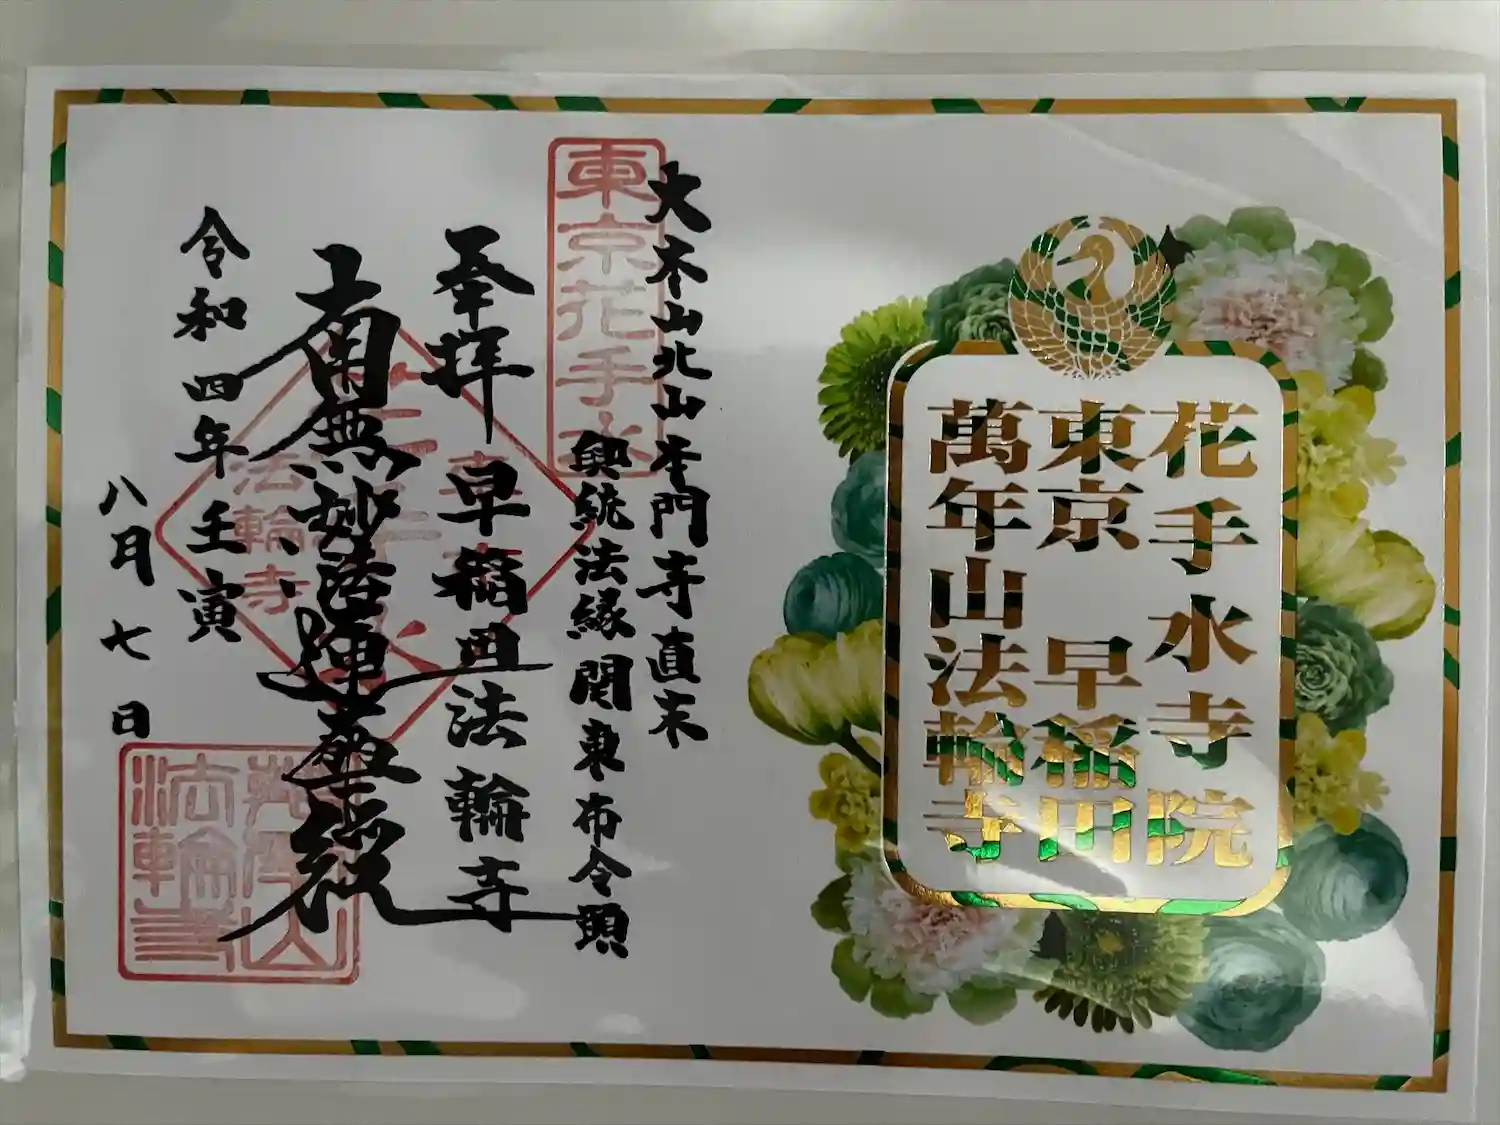 花手水寺院
東京 早稲田
萬年山法輪寺
大本山北山本門寺直末
東京花手水
興統法縁関東布令頭
奉拝 早稲田法輪寺
南無妙法蓮華経
法輪寺
令和四年壬寅
八月七日
萬年山
法輪寺